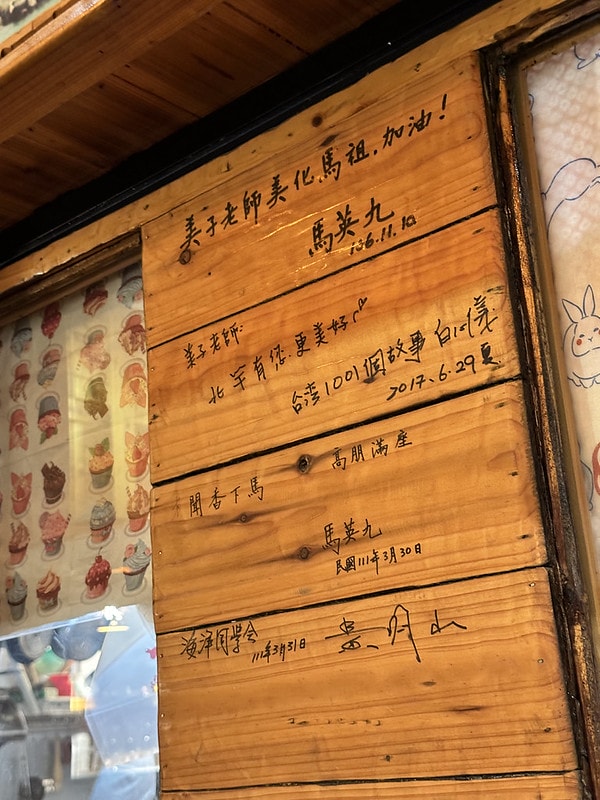 美子老師美化馬祖,加油!
馬英九
106.11.10
美子老師:
北竿有您.更美好
台湾1001個故事 白心儀
2017、6.29夏
聞香下馬 高朋滿座
馬英九
民國111年3月30日
海洋同學会
111年3月31日